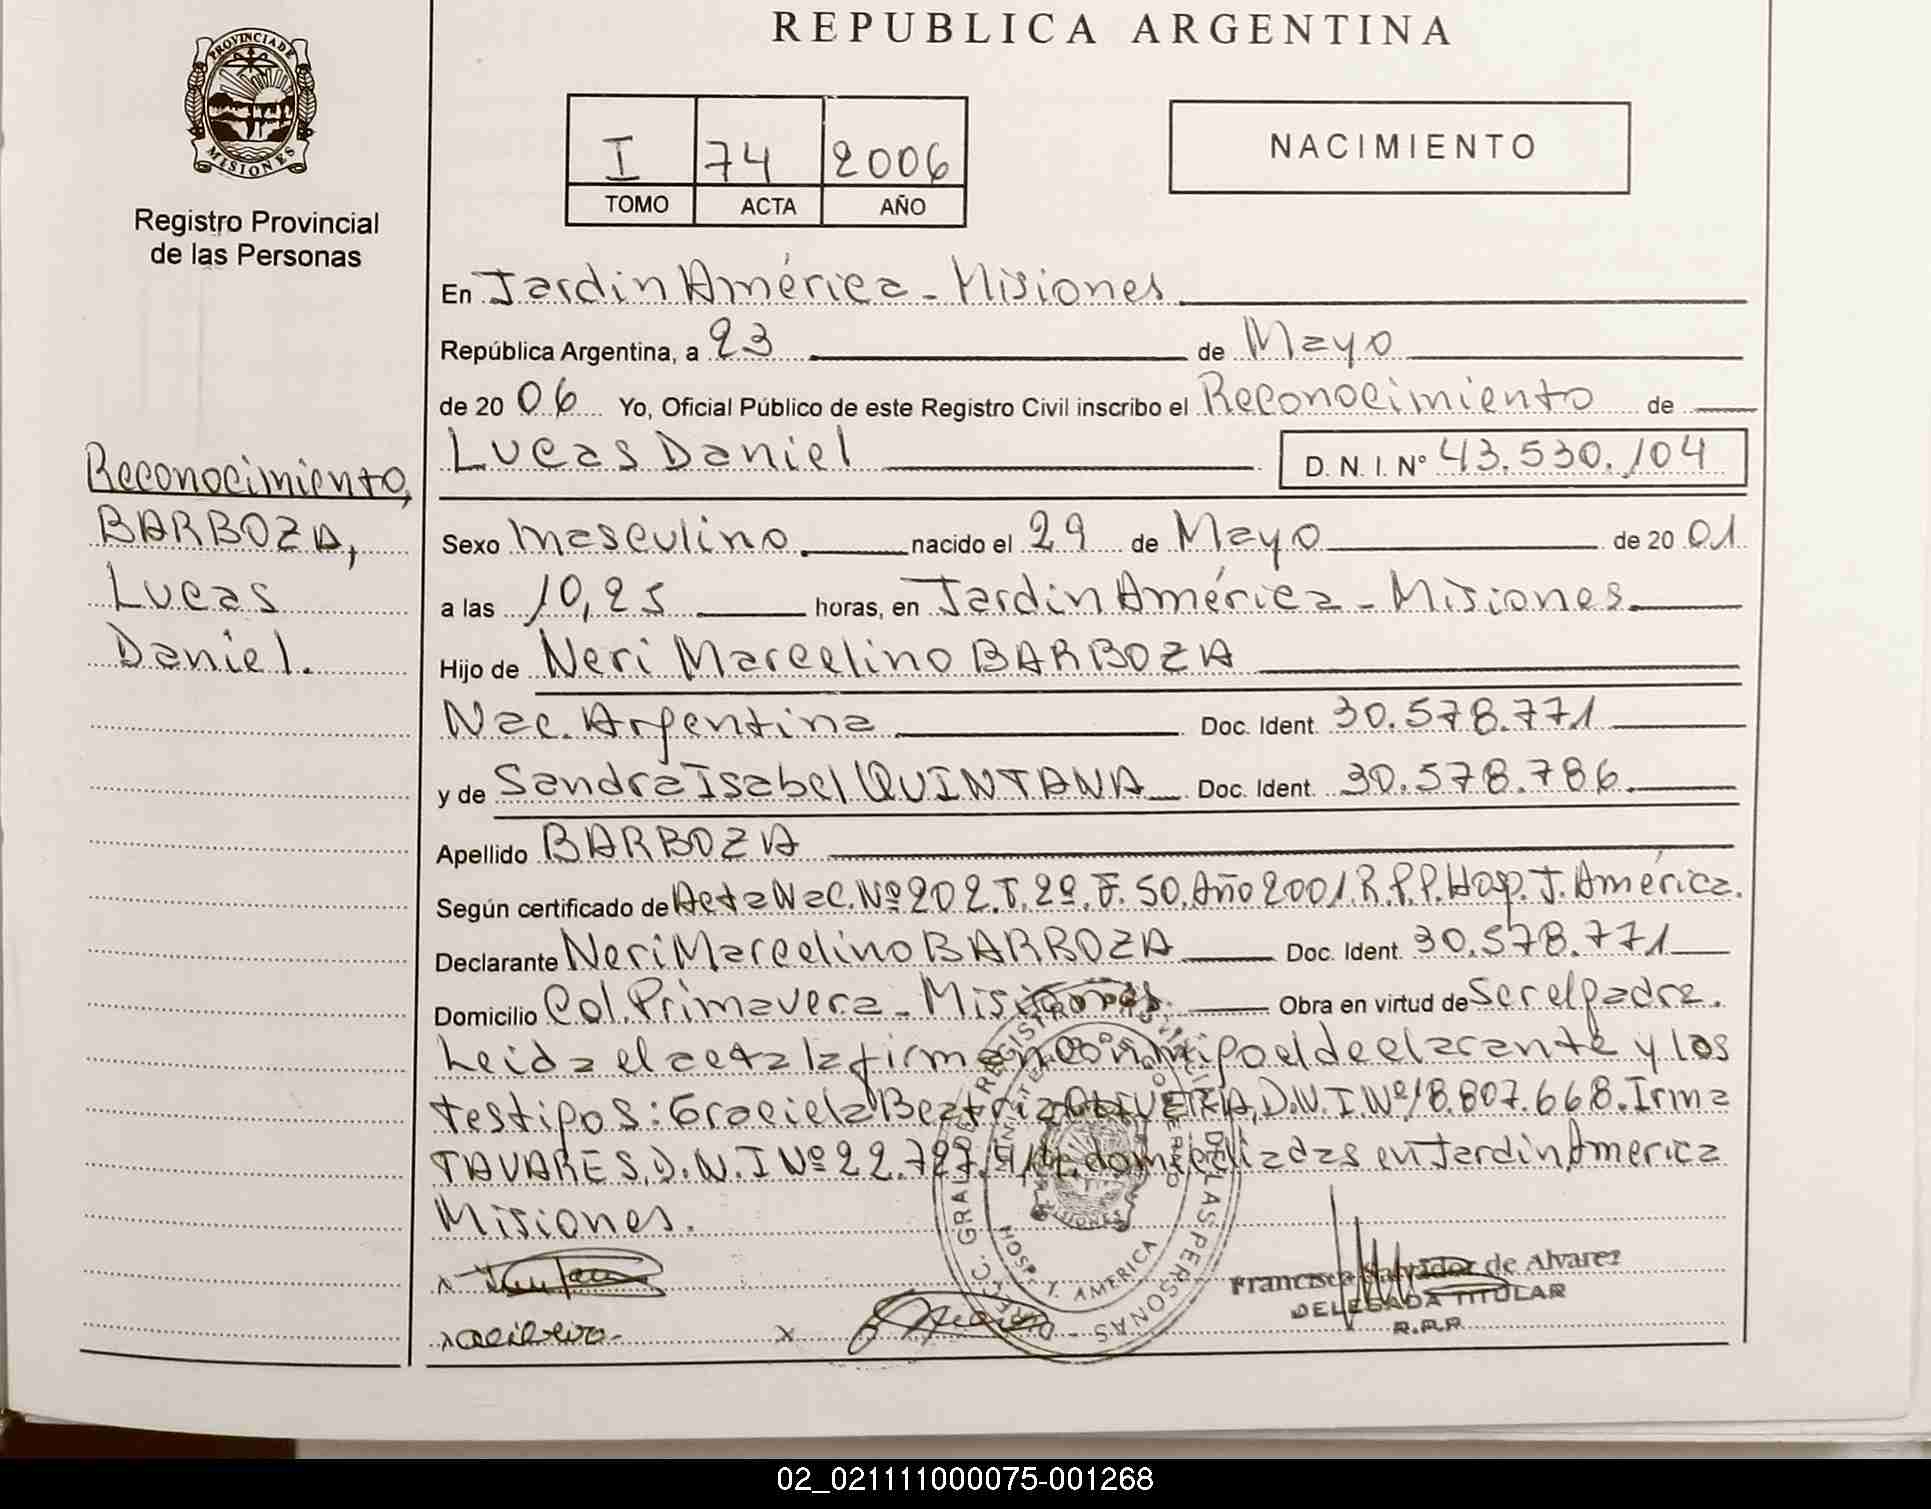 REPUBLICA ARGENTINA
PROVINCIA DE
MISIONES
Registro Provincial
de las Personas
I 74 2006
TOMO ACTA AÑO
NACIMIENTO
En Jardin América - Misiones
República Argentina, a 23 de Mayo
de 20 06 Yo, Oficial Público de este Registro Civil inscribo el Reconocimiento de
Lucas Daniel D. N. I. Nº 43.530.104
Reconocimiento,
BARBOZA,
Lucas
Daniel.
Sexo Masculino. nacido el 29 de Mayo de 20 01
a las 10,25 horas, en Jardin América - Misiones.
Hijo de Neri Marcelino BARBOZA
Nac. Argentina Doc. Ident. 30.578.771
y de Sandra Isabel QUINTANA Doc. Ident. 30.578.786.
Apellido BARBOZA
Según certificado de Acta Nac. Nº 202. T. 2º. F. 50. Año 2001. R.P.P. Hosp. J. América.
Declarante Neri Marcelino BARBOZA Doc. Ident. 30.578.771
Domicilio Col. Primavera - Misiones. Obra en virtud de Ser el padre.
Leida el acta la firman conmigo el declarante y los
testigos: Graciela Beatriz OLIVEIRA, D.N.I. Nº 18.807.668. Irma
TAVARES, D.N.I Nº 22.727. domiciliadas en Jardin America
Misiones.
Francisca Salvador de Alvarez
DELEGADA TITULAR
R.P.P.
HOSP. J. AMERICA
02_021111000075-001268